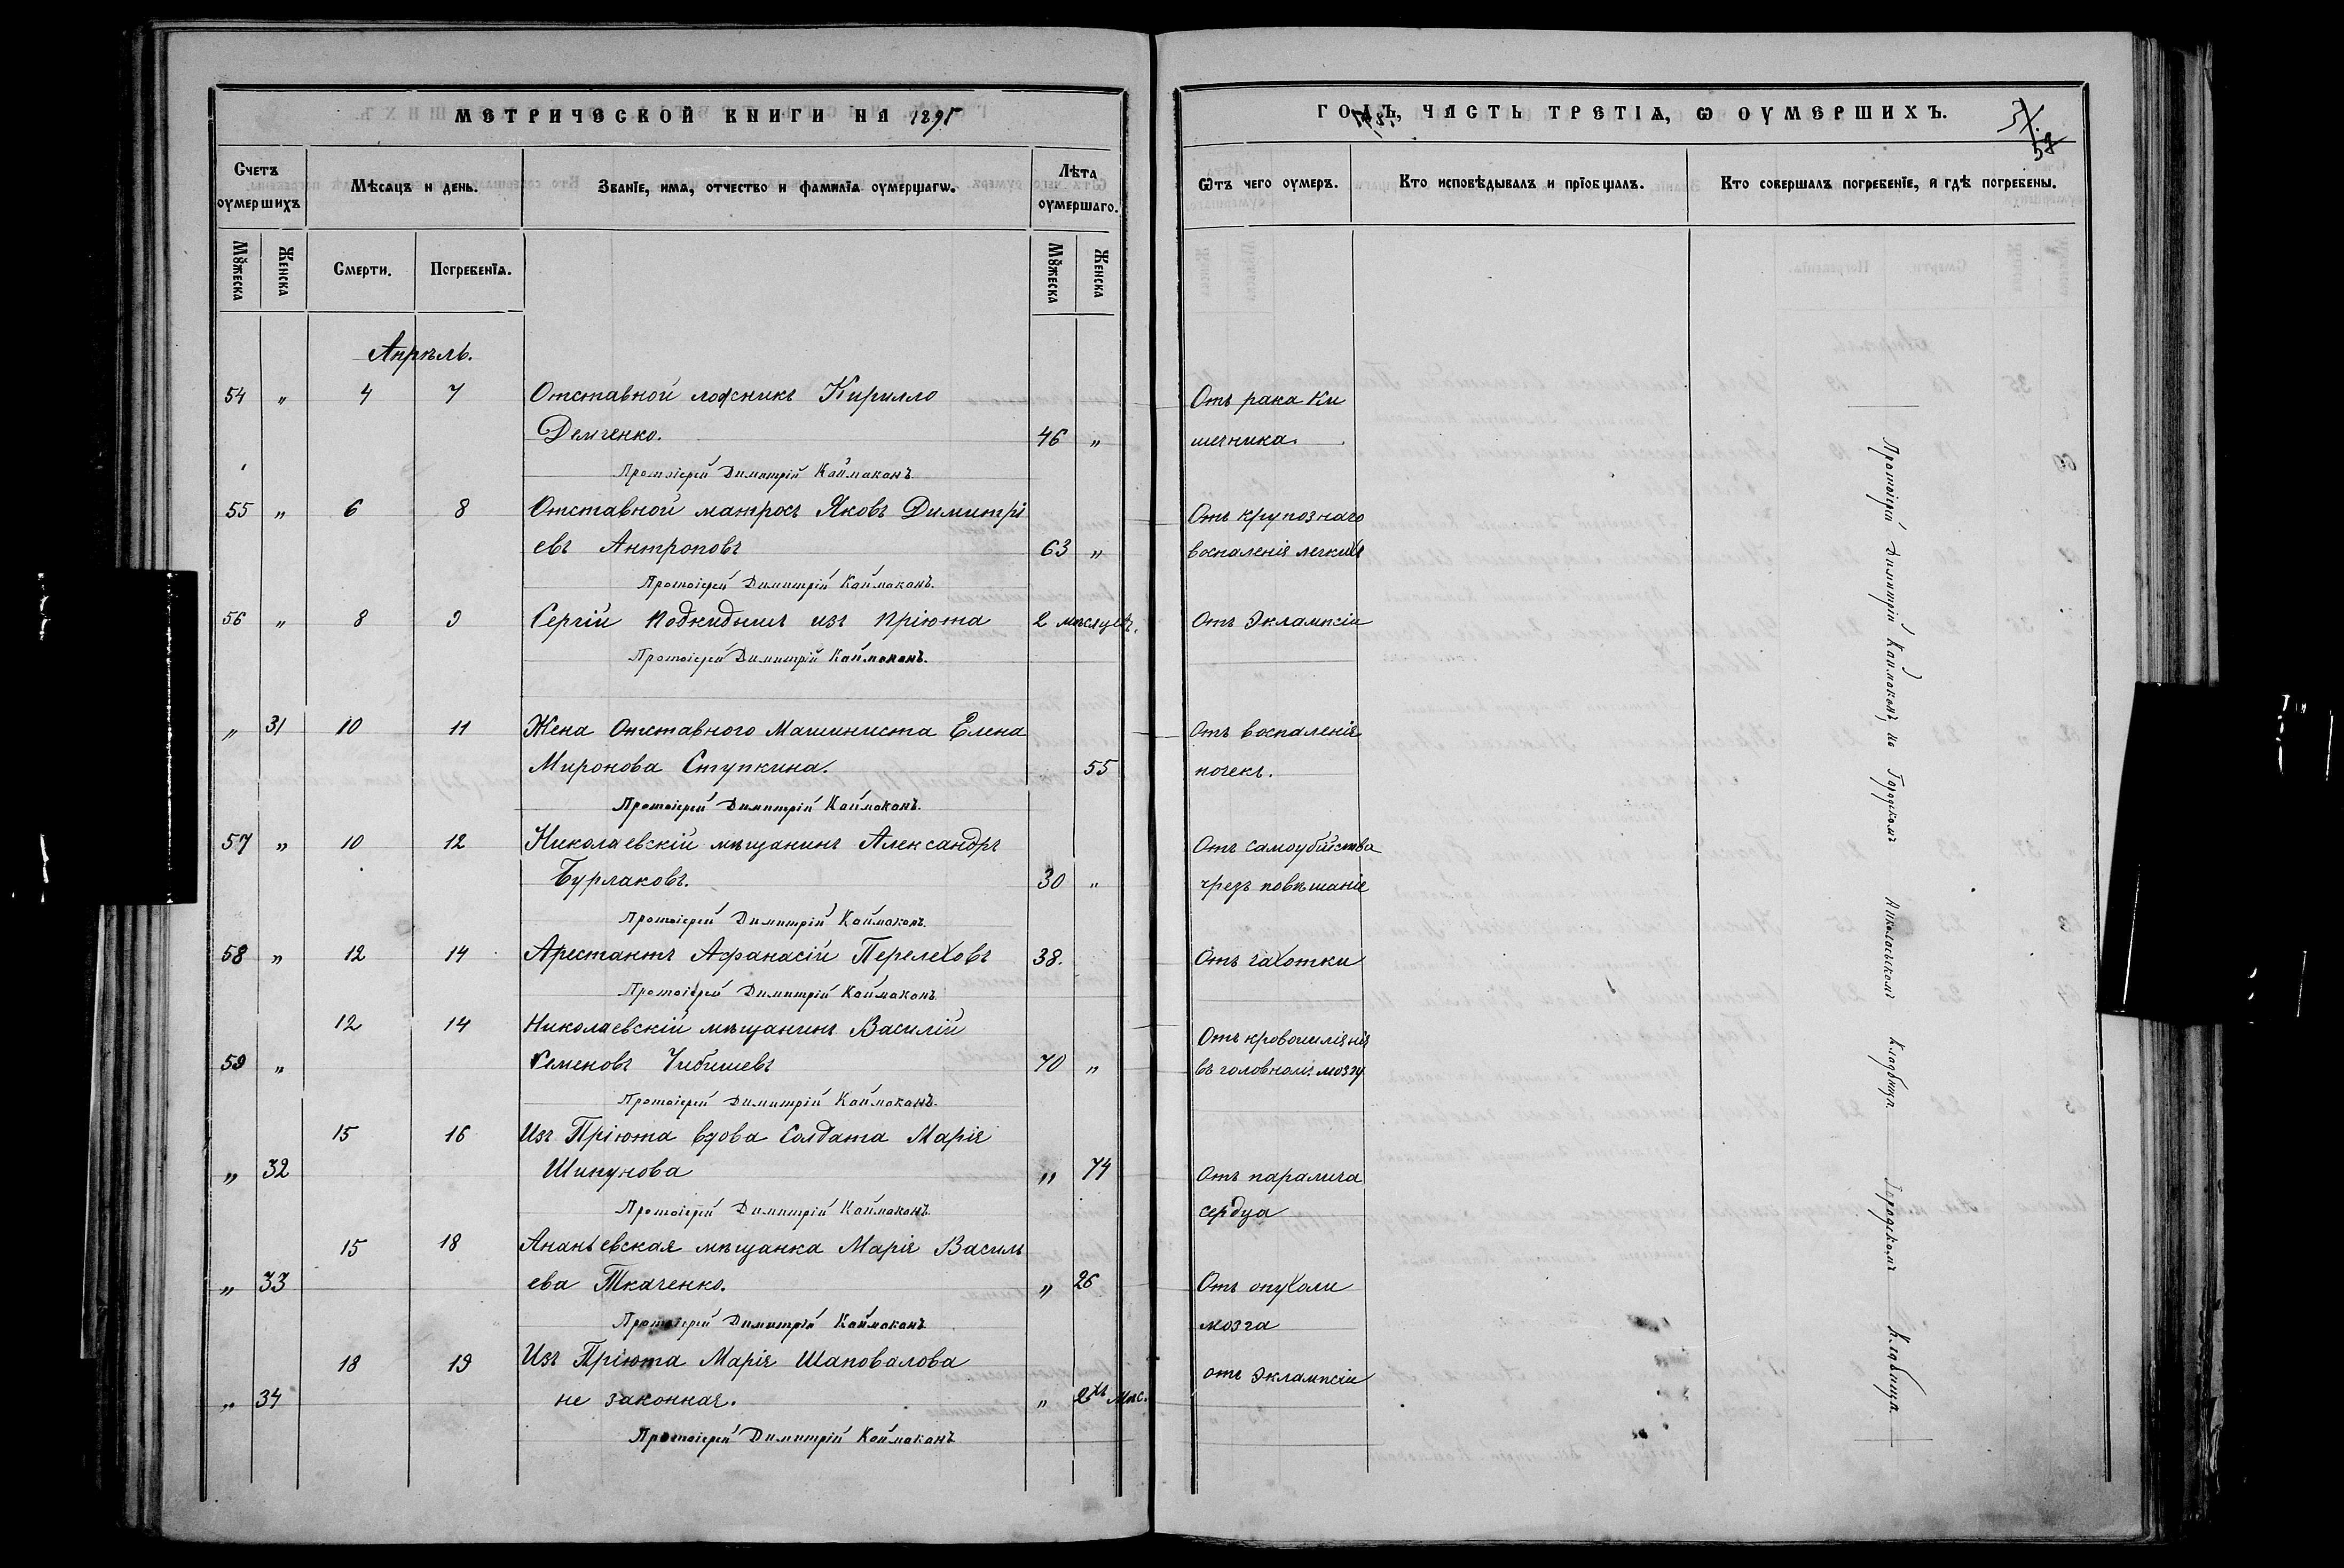 МЕТРИЧЕСКОЙ КНИГИ НА 1895
Счетъ оумершихъ
Мѣсяцъ и день.
Званїе, имя, отчество и фамилїя оумершагѡ.
Лѣта оумершаго.
Мꙋжеска
Женска
Смерти.
Погребенїя.
Мꙋжеска
Женска
Апрѣль.
54 " 4 7 Отставной ложникъ Кирилло
Демченко. 46 "
Протоіерей Димитрій Каймаканъ.
55 " 6 8 Отставной матросъ Яковъ Димитрі
евъ Антроповъ 63 "
Протоіерей Димитрій Каймаканъ.
56 " 8 9 Сергій подкидышъ изъ пріюта 2 мѣсяцев.
Протоіерей Димитрій Каймаканъ.
" 31 10 11 Жена Отставного Машиниста Елена
Миронова Ступкина. 55
Протоіерей Димитрій Каймаканъ.
57 " 10 12 Николаевскій мѣщанинъ Александръ
Бурлаковъ. 30 "
Протоіерей Димитрій Каймаканъ.
58 " 12 14 Арестантъ Афанасій Перелеховъ 38.
Протоіерей Димитрій Каймаканъ
12 14 Николаевскій мѣщанинъ Василій
59 " Семеновъ Чибишевъ 70 "
Протоіерей Димитрій Каймаканъ.
15 16 Изъ Пріюта вдова Солдата Марія
" 32 Шипунова " 74
Протоіерей Димитрій Каймаканъ.
15 18 Ананьевская мѣщанка Марія Василь
" 33 ева Ткаченко. " 26
Протоіерей Димитрій Каймаканъ
18 19 Изъ Пріюта Марія Шаповалова
" 34 не законная. " 2хъ мѣс.
Протоіерей Димитрій Каймаканъ
ГОДЪ, ЧАСТЬ ТРЕТІѦ, Ѡ ОУМЕРШИХЪ.
58
Ѿтъ чего оумеръ.
Кто исповѣдывалъ и прїобщалъ.
Кто совершалъ погребенїе, и гдѣ погребены.
Отъ рака Ки
шечника.
Отъ крупознаго
воспаленія легкихъ
Отъ Эклампсіи
Отъ воспаленія
почекъ.
Отъ самоубійства
чрезъ повѣшаніе
Отъ чахотки
Отъ кровоизліянія
въ головномъ мозгу
Отъ паралича
сердца
Отъ опухоли
мозга
отъ Эклампсіи
Протоіерей Димитрій Каймаканъ, на Городскомъ Николаевскомъ Кладбищѣ. Городскомъ Кладбищѣ.